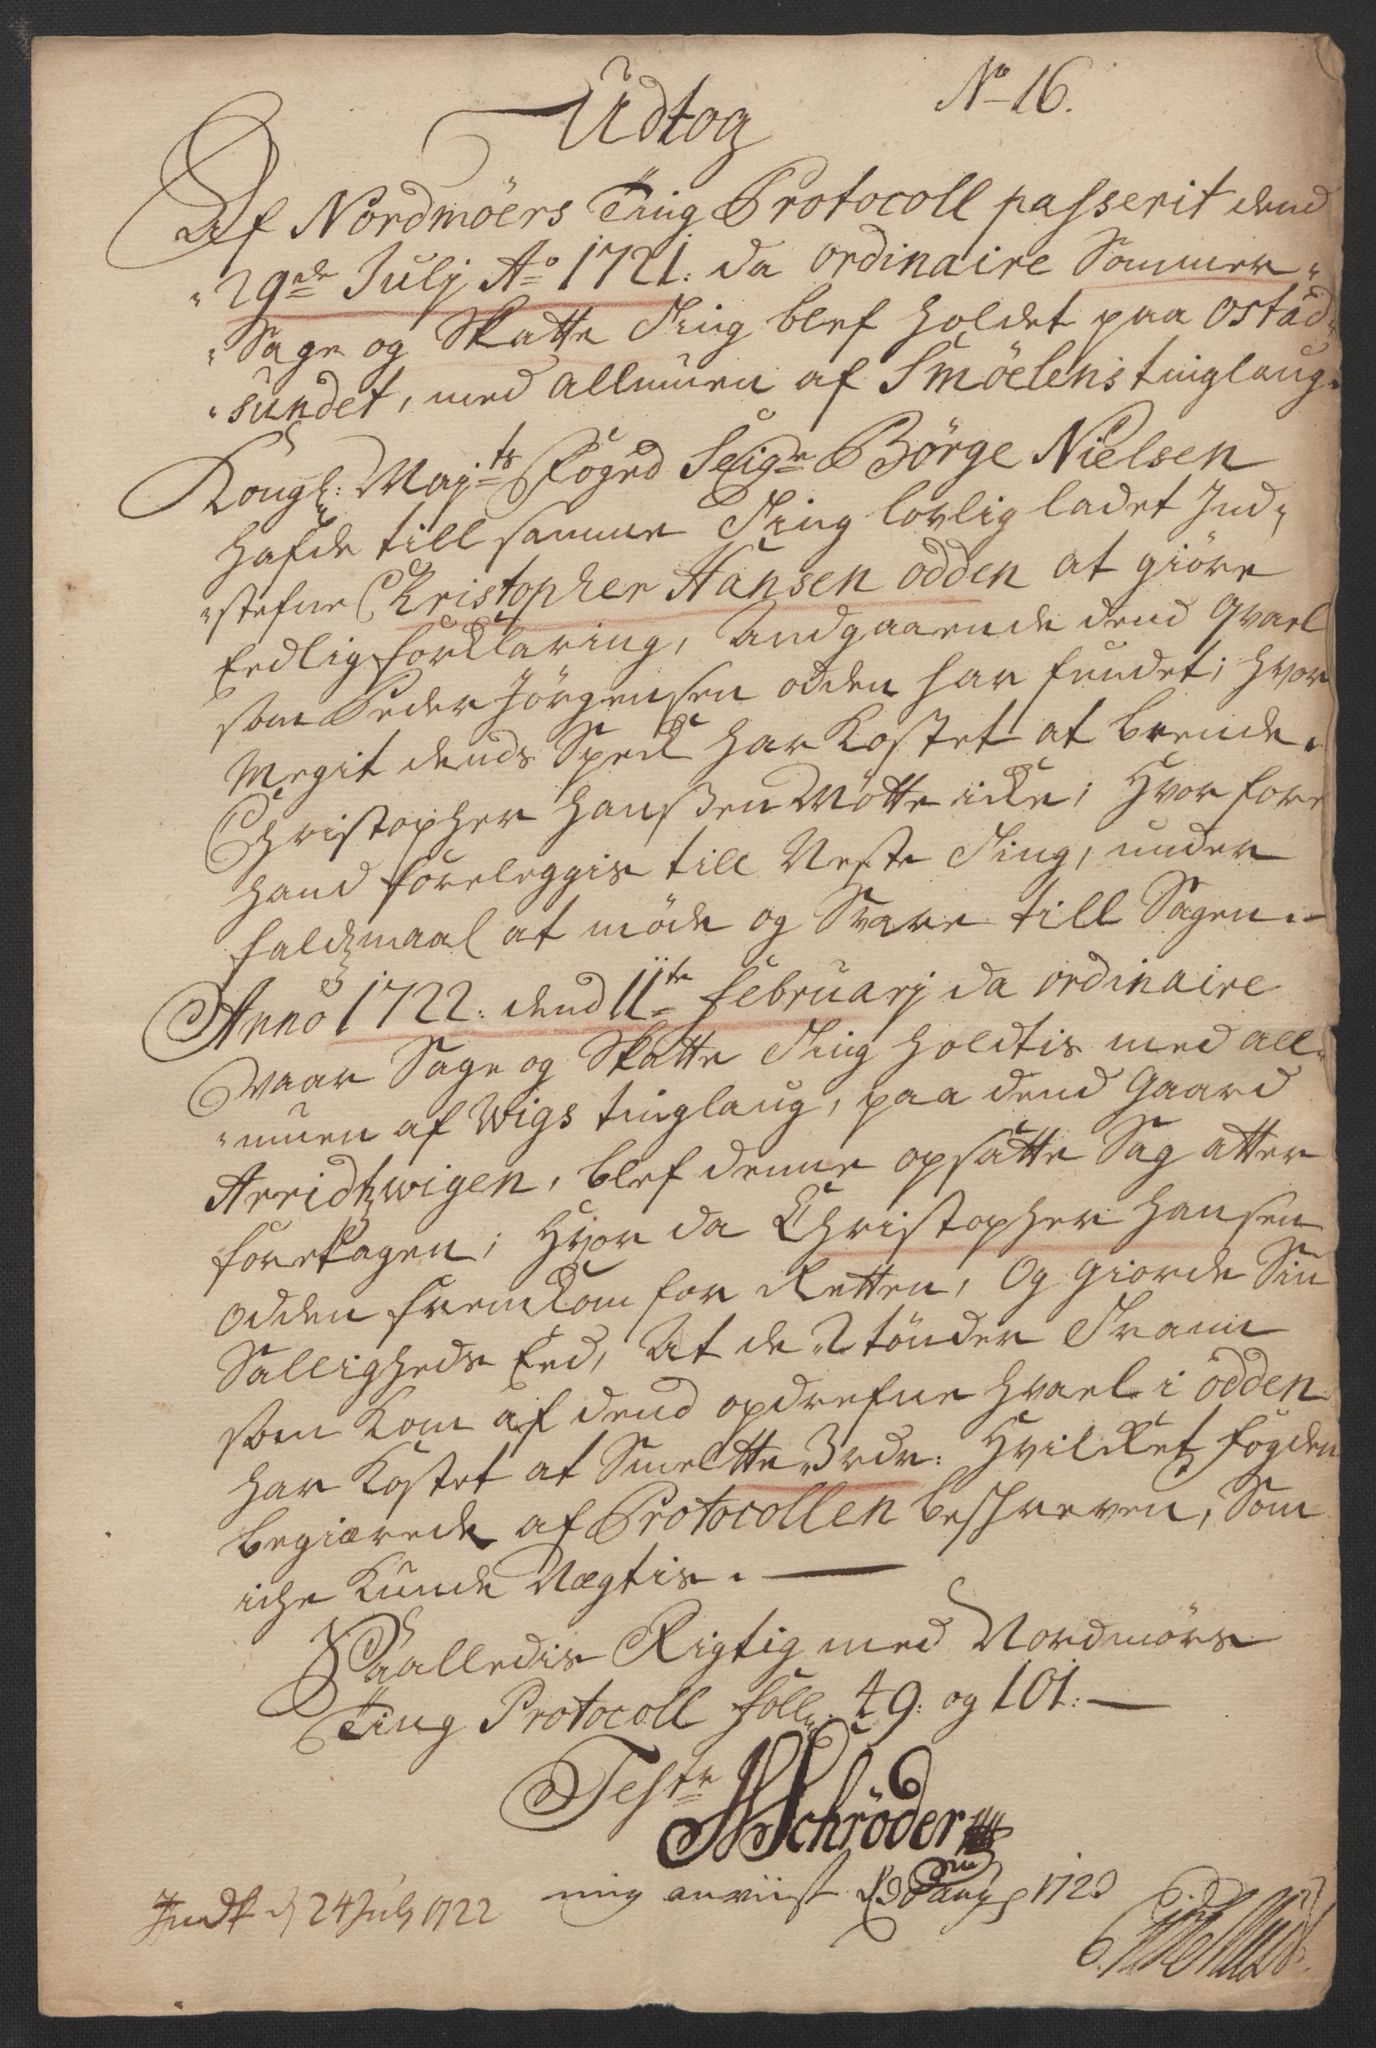 No 16.
Udtog
Af Nordmöers Ting Protocoll passerit dend
29de Julij Ao 1721. da ordinaire Sommer-
Sage og Skatte Ting blef holdet paa Ostad-
sundet, med allmuen af Smöelens tinglaug.
Kongl: Maj:ts Foged Seigr Börge Nielsen
hafde till samme Ting lovlig ladet Ind-
stefne Christopher Hansen odden at giöre
Eedlig forklaring, Andgaaende dend qvael
som Peder Jörgensen odden har fundet; hvor
Megit dends Speck har kostet at brende.
Christopher Hanßen Mötte icke; Hvor fore
hand foreleggis till Neste Ting, under
faldzmaal at möde og Svare till Sagen.-
Anno 1722. dend 11te Februarij da ordinaire
vaar Sage og Skatte Ting holdtis med all-
muen af Wigs tinglaug, paa dend Gaard
Arridtzwigen, blef denne opsatte Sag atter
foretagen; Hvor da Christopher Hansen
odden fremkom for Retten, Og giorde Sin
Salligheds Eed, At de 2 tönder Trann
som kom af dend opdrefne hvael i odden
har kostet at Smeltte 3 rdr: Hvilcket fogden
begiærede af Protocollen beschreven, Som
iche kunde Nægtis. —
Saalledis Rigtig med Nordmörs
Ting Protocoll foll: 49: og 101: —
Teste
Schröder
mig anviist 1723
Indk d 24 Julj 1722